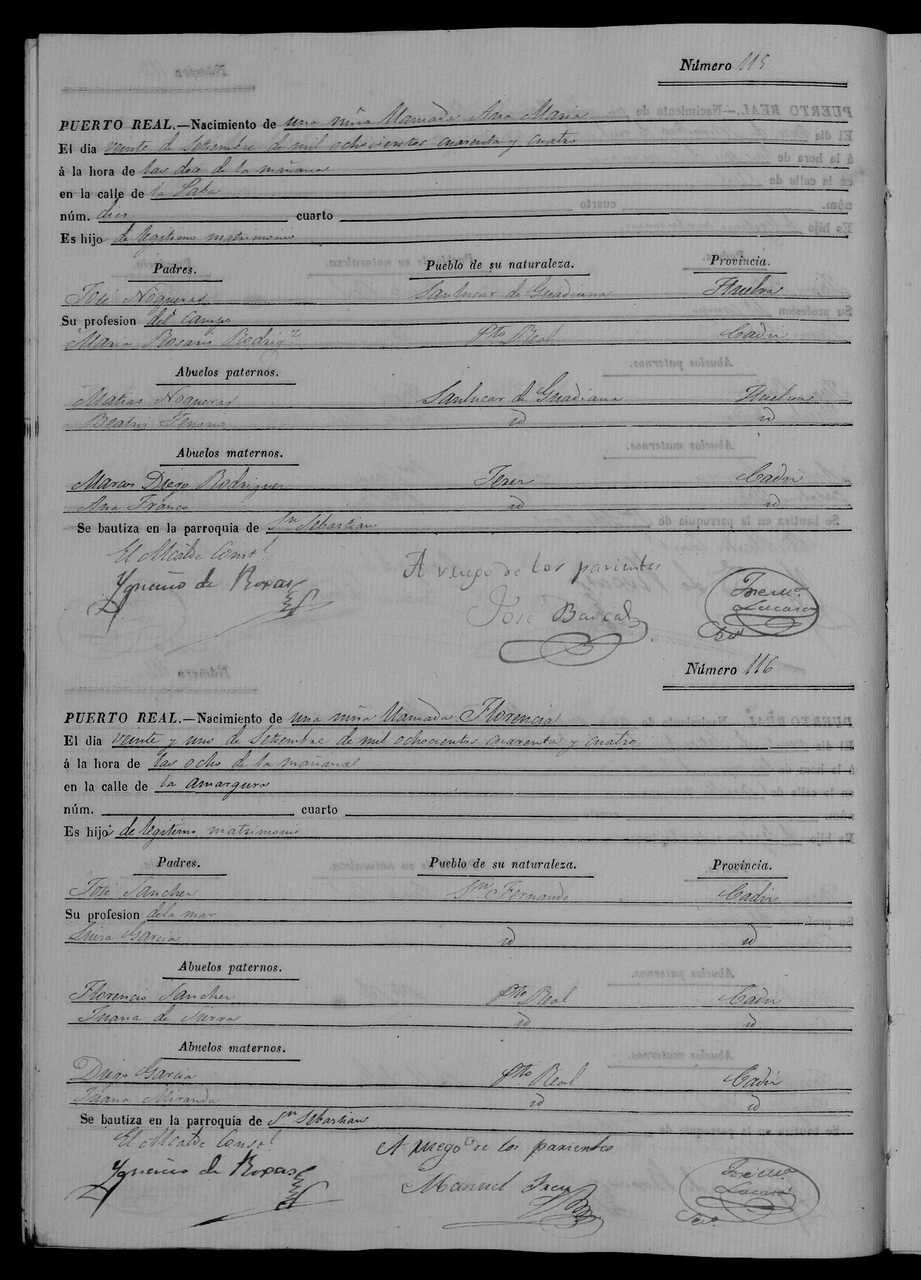 Número 115
PUERTO REAL.—Nacimiento de una niña llamada Ana Maria
El dia veinte de Setiembre de mil ochocientos cuarenta y cuatro
á la hora de las dos de la mañana
en la calle de la
núm. dies cuarto
Es hijo de legitimo matrimonio
Padres. Pueblo de su naturaleza. Provincia.
José Nogueras Sanlucar de Guadiana Huelva
Su profesion del campo
Maria Rosario Rodrigz Pto Real Cadiz
Abuelos paternos.
Matias Nogueras Sanlucar de Guadiana Huelva
Beatriz id id
Abuelos maternos.
Marcos Diego Rodriguez Jerez Cadiz
Ana Franco id id
Se bautiza en la parroquia de Sn Sebastian
El Alcalde Consl A ruego de los parientes
Ygnacio de Roxas José
Número 116
PUERTO REAL.—Nacimiento de una niña llamada Florencia
El dia veinte y uno de Setiembre de mil ochocientos cuarenta y cuatro
á la hora de las ocho de la mañana
en la calle de la amargura
núm. cuarto
Es hijo de legitimo matrimonio
Padres. Pueblo de su naturaleza. Provincia.
José Sanchez Sn Fernando Cadiz
Su profesion dela mar
Luisa Garcia id id
Abuelos paternos.
Florencio Sanchez Pto Real Cadiz
Juana de id id
Abuelos maternos.
Diego Garcia Pto Real Cadiz
Juana Miranda id id
Se bautiza en la parroquia de Sn Sebastian
El Alcalde Consl A ruego de los parientes
Ygnacio de Roxas Manuel